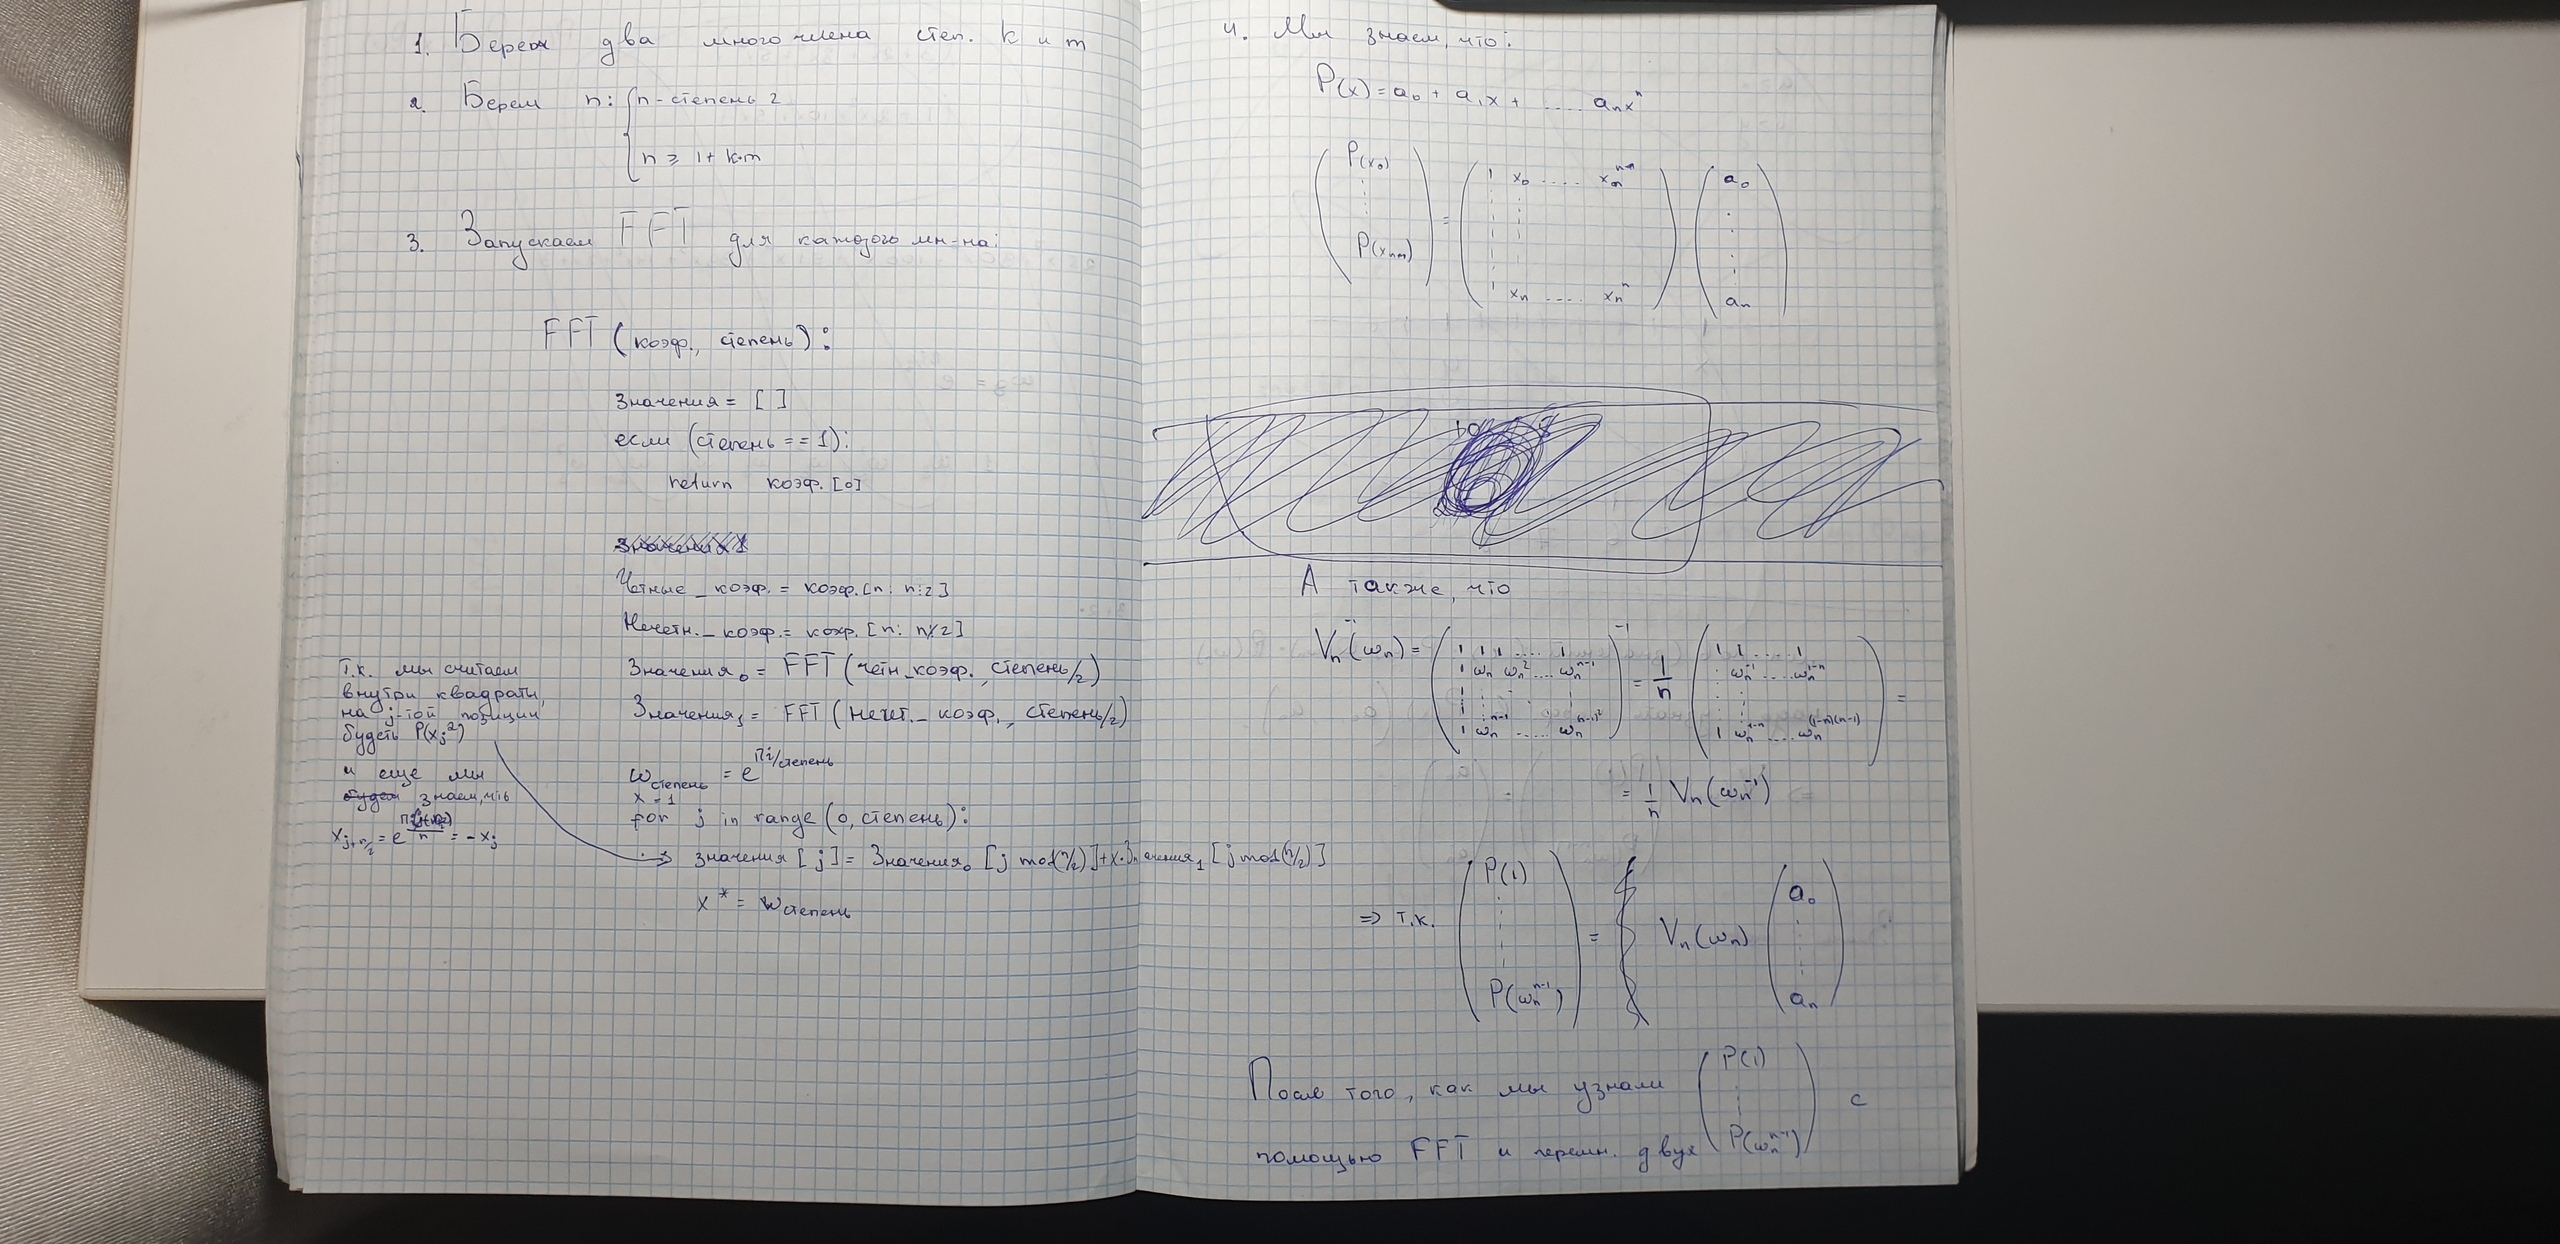 1. Берем два многочлена степ. k и m
2. Берем n: { n - степень 2
n ≥ 1 + k·m
3. Запускаем FFT для каждого мн-на:
FFT (коэф., степень):
Значения = [ ]
если (степень == 1):
return коэф. [0]
Четные_коэф. = коэф. [n: n⋮2]
Нечетн._коэф. = коэф. [n: n⋮̸2]
Значения₀ = FFT (четн_коэф., степень/2)
Значения₁ = FFT (нечет._коэф., степень/2)
ω_степень = e^(πi/степень)
x = 1
for j in range (0, степень):
значения [j] = Значения₀ [j mod (n/2)] + x·Значения₁ [j mod (n/2)]
x *= ω_степень
т.к. мы считаем
внутри квадраты,
на j-той позиции
будеть P(xⱼ²)
и еще мы
знаем, что
x_(j+n/2) = e = -xⱼ
4. Мы знаем, что:
P(x) = a₀ + a₁x + ..... aₙxⁿ
( P(x₀) ⋮ ) = ( 1 x₀ .... ⋮ 1 xₙ .... xₙⁿ ) ( a₀ ⋮ aₙ )
А также, что
Vₙ⁻¹(ωₙ) = ( 1 1 1 .... 1
1 ωₙ ωₙ² .... ωₙⁿ⁻¹
⋮
1 ωₙⁿ⁻¹ ..... ωₙ^(n-1)² )⁻¹ = 1/n ( 1 1 ..... 1
⋮ ωₙ⁻¹ ..... ωₙ¹⁻ⁿ
⋮
1 ωₙ¹⁻ⁿ .... ωₙ^(1-n)(n-1) ) =
= 1/n Vₙ(ωₙ⁻¹)
⇒ т.к. ( P(1) ⋮ P(ωₙⁿ⁻¹) ) = Vₙ(ωₙ) ( a₀ ⋮ aₙ )
После того, как мы узнали ( P(1) ⋮ P(ωₙⁿ⁻¹) ) с
помощью FFT и перемн. двух